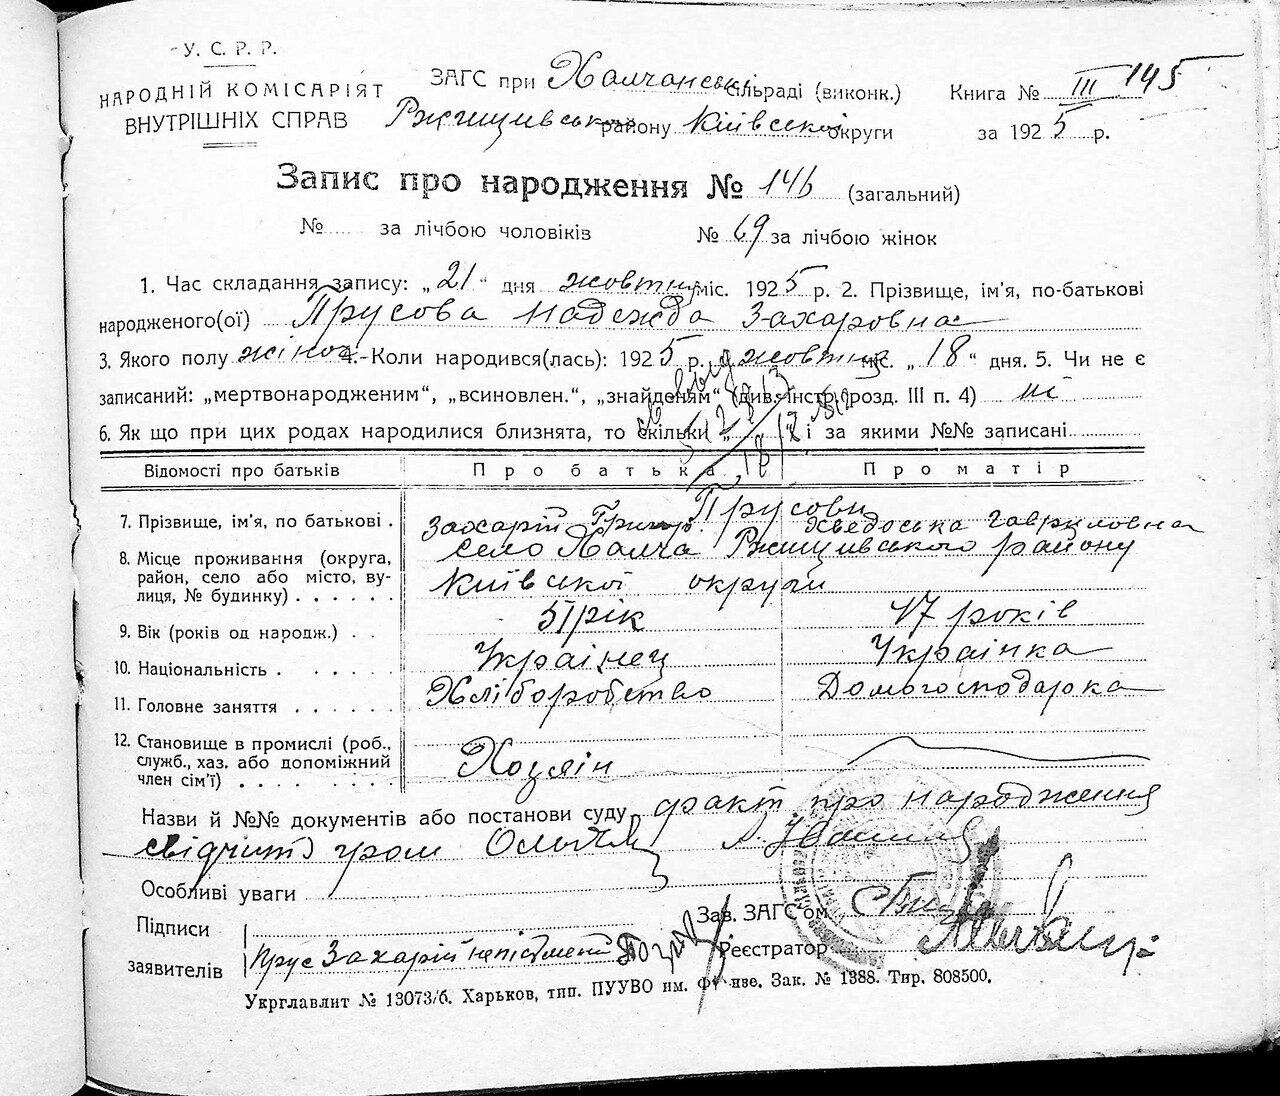 У. С. Р. Р.
НАРОДНІЙ КОМІСАРІЯТ
ВНУТРІШНІХ СПРАВ
ЗАГС при Халчанськ сільраді (виконк.)
Ржищивськ району Київської округи
Книга № III 145
за 1925 р.
Запис про народження № 146 (загальний)
№ за лічбою чоловіків № 69 за лічбою жінок
1. Час складання запису: „21“ дня жовтня міс. 1925 р. 2. Прізвище, ім'я, по-батькові
народженого(ої) Прусова Надежда Захаровна
3. Якого полу жіноч 4. Коли народився(лась): 1925 р. жовтня міс. „18“ дня. 5. Чи не є
записаний: „мертвонародженим“, „всиновлен.“, „знайденям“ (див. інстр. розд. III п. 4) ні
6. Як що при цих родах народилися близнята, то скільки „ і за якими №№ записані
Відомості про батьків Про батька Про матір
7. Прізвище, ім'я, по батькові . Прусови
Захарій Григор. Хведоська Гавриловна
8. Місце проживання (округа, район, село або місто, вулиця, № будинку) село Халча Ржищивського району
Київської округи
9. Вік (років од народж.) . . 51 рік 47 років
10. Національність . Українец Українка
11. Головне заняття Хліборобство Домогосподарка
12. Становище в промислі (роб., служб., хаз. або допоміжний член сім'ї) Хозяін
Назви й №№ документів або постанови суду факт про народження
свідчить гром
Особливі уваги
Підписи
заявителів Прус Захарій неписмений
Зав. ЗАГС'ом
Реєстратор
Укрглавлит № 13073/б. Харьков, тип. ПУУВО им. Фрунзе. Зак. № 1388. Тир. 808500.